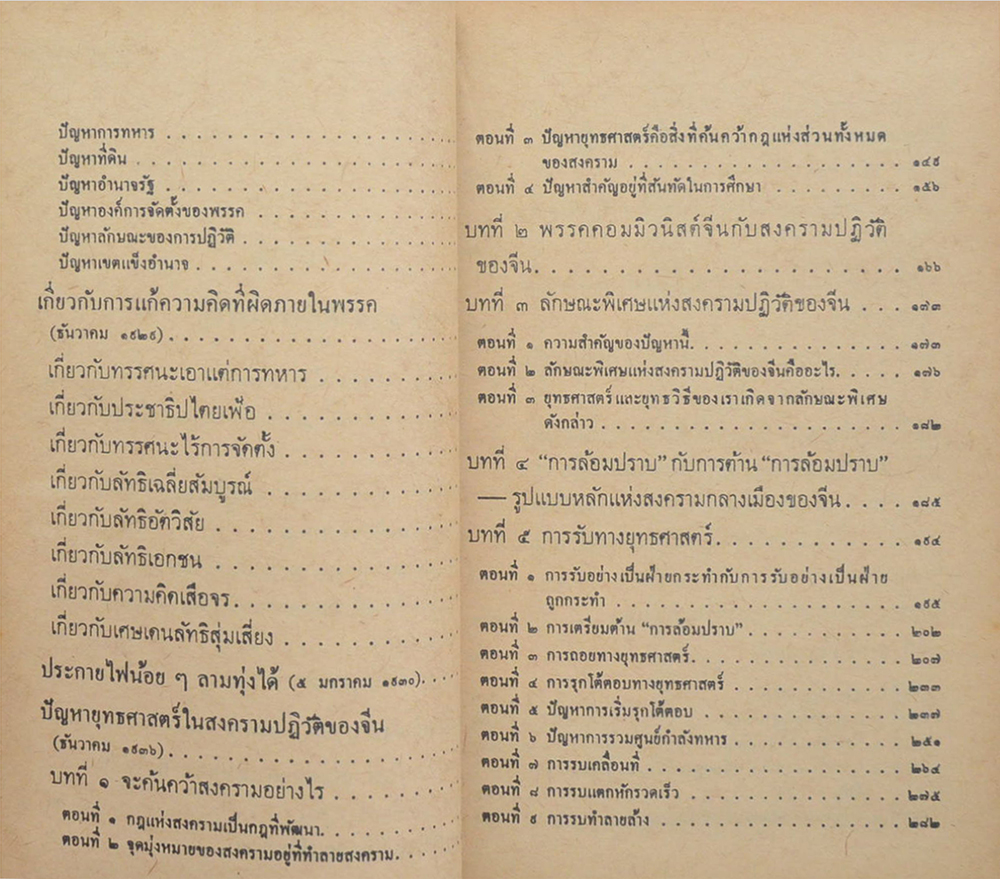 ปัญหาการทหาร . . . . . . . . . . . . . . . . . . . .
ปัญหาที่ดิน . . . . . . . . . . . . . . . . . . . . . .
ปัญหาอำนาจรัฐ . . . . . . . . . . . . . . . . . . . .
ปัญหาองค์การจัดตั้งของพรรค . . . . . . . . . . . . . .
ปัญหาลักษณะของการปฏิวัติ . . . . . . . . . . . . . . .
ปัญหาเขตแข็งอำนาจ . . . . . . . . . . . . . . . . . .
เกี่ยวกับการแก้ความคิดที่ผิดภายในพรรค
(ธันวาคม ๑๙๒๙) . . . . . . . . . . . . . . . . . . .
เกี่ยวกับทรรศนะเอาแต่การทหาร . . . . . . . . .
เกี่ยวกับประชาธิปไตยเฟ้อ . . . . . . . . . . . .
เกี่ยวกับทรรศนะไร้การจัดตั้ง . . . . . . . . . . .
เกี่ยวกับลัทธิเฉลี่ยสัมบูรณ์ . . . . . . . . . . . .
เกี่ยวกับลัทธิอัตวิสัย . . . . . . . . . . . . . . .
เกี่ยวกับลัทธิเอกชน . . . . . . . . . . . . . . .
เกี่ยวกับความคิดเสือจร . . . . . . . . . . . . . .
เกี่ยวกับเศษเดนลัทธิสุ่มเสี่ยง . . . . . . . . . . .
ประกายไฟน้อย ๆ ลามทุ่งได้ (๕ มกราคม ๑๙๓๐) . . .
ปัญหายุทธศาสตร์ในสงครามปฏิวัติของจีน
(ธันวาคม ๑๙๓๖) . . . . . . . . . . . . . . . . . . .
บทที่ ๑ จะค้นคว้าสงครามอย่างไร . . . . . . . . .
ตอนที่ ๑ กฎแห่งสงครามเป็นกฎที่พัฒนา . . . . . . . . .
ตอนที่ ๒ จุดมุ่งหมายของสงครามอยู่ที่ทำลายสงคราม . . . .
ตอนที่ ๓ ปัญหายุทธศาสตร์คือสิ่งที่ค้นคว้ากฎแห่งส่วนทั้งหมด
ของสงคราม . . . . . . . . . . . . . . . . . ๑๔๙
ตอนที่ ๔ ปัญหาสำคัญอยู่ที่สันทัดในการศึกษา . . . . . . . . . ๑๕๖
บทที่ ๒ พรรคคอมมิวนิสต์จีนกับสงครามปฏิวัติ
ของจีน . . . . . . . . . . . . . . . . . . . . . . . ๑๖๖
บทที่ ๓ ลักษณะพิเศษแห่งสงครามปฏิวัติของจีน . . . ๑๗๓
ตอนที่ ๑ ความสำคัญของปัญหานี้ . . . . . . . . . . . . . ๑๗๓
ตอนที่ ๒ ลักษณะพิเศษแห่งสงครามปฏิวัติของจีนคืออะไร . . . . . ๑๗๖
ตอนที่ ๓ ยุทธศาสตร์และยุทธวิธีของเราเกิดจากลักษณะพิเศษ
ดังกล่าว . . . . . . . . . . . . . . . . . . . ๑๘๒
บทที่ ๔ “การล้อมปราบ” กับการต้าน “การล้อมปราบ”
— รูปแบบหลักแห่งสงครามกลางเมืองของจีน . . . . ๑๘๕
บทที่ ๕ การรับทางยุทธศาสตร์ . . . . . . . . . . . . ๑๙๔
ตอนที่ ๑ การรับอย่างเป็นฝ่ายกระทำกับการรับอย่างเป็นฝ่าย
ถูกกระทำ . . . . . . . . . . . . . . . . . . ๑๙๕
ตอนที่ ๒ การเตรียมต้าน “การล้อมปราบ” . . . . . . . . . . ๒๐๒
ตอนที่ ๓ การถอยทางยุทธศาสตร์ . . . . . . . . . . . . . ๒๐๗
ตอนที่ ๔ การรุกโต้ตอบทางยุทธศาสตร์ . . . . . . . . . . . ๒๓๓
ตอนที่ ๕ ปัญหาการเริ่มรุกโต้ตอบ . . . . . . . . . . . . . ๒๓๗
ตอนที่ ๖ ปัญหาการรวมศูนย์กำลังทหาร . . . . . . . . . . . ๒๕๑
ตอนที่ ๗ การรบเคลื่อนที่ . . . . . . . . . . . . . . . . ๒๖๔
ตอนที่ ๘ การรบแตกหักรวดเร็ว . . . . . . . . . . . . . . ๒๗๕
ตอนที่ ๙ การรบทำลายล้าง . . . . . . . . . . . . . . . . ๒๘๒